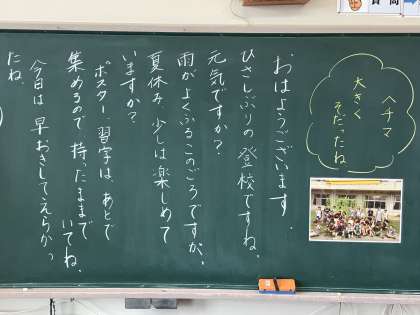 ヘチマ
大きく
そだったね
おはようございます.
ひさしぶりの登校ですね。
元気ですか?
雨がよくふるこのごろですが、
夏休み、少しは楽しめて
いますか?
ポスター、習字は、あとで
集めるので持ったままで
いてね。
今日は早おきしてえらかっ
たね。